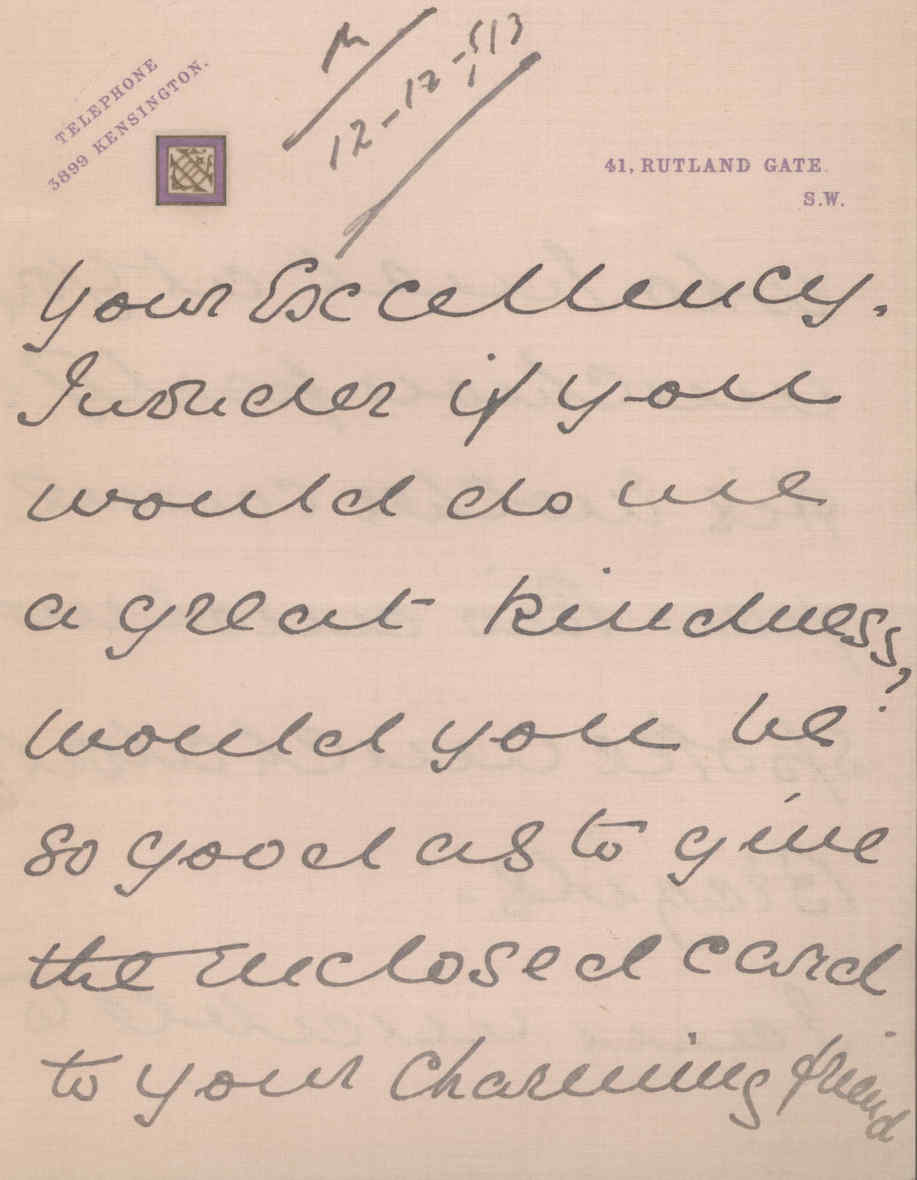 TELEPHONE
3899 KENSINGTON.
12-12-913
41, RUTLAND GATE.
S.W.
Your Excellency.
I wonder if you
would do me
a great kindness,
would you be
so good as to give
the enclosed card
to your charming friend